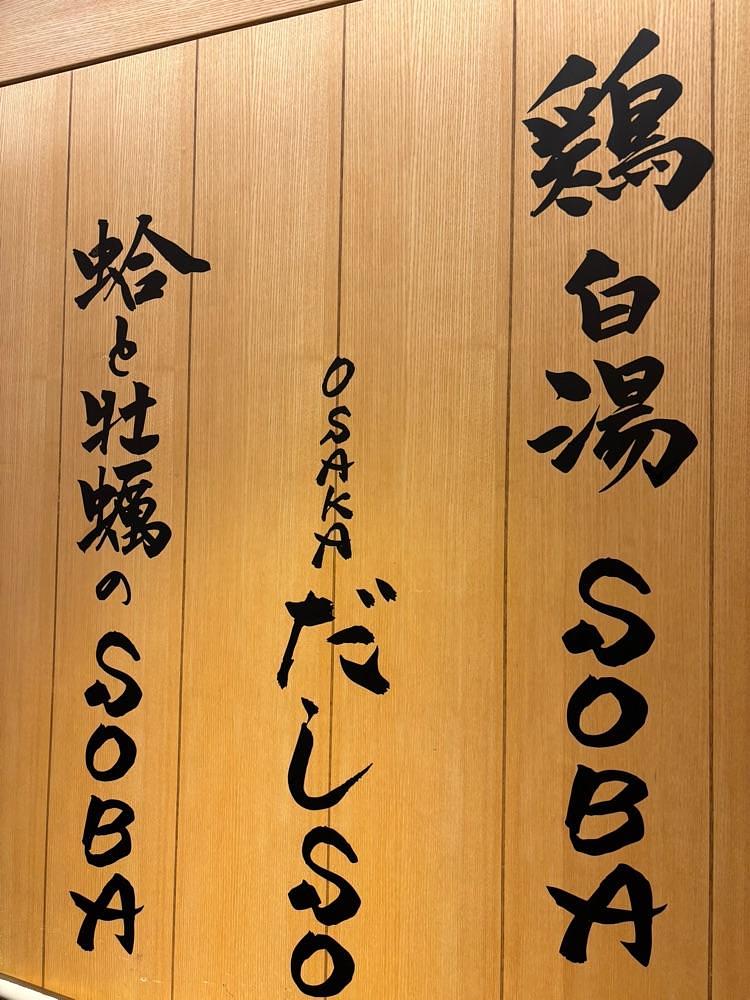 鶏白湯SOBA
OSAKAだしSO
蛤と牡蠣のSOBA